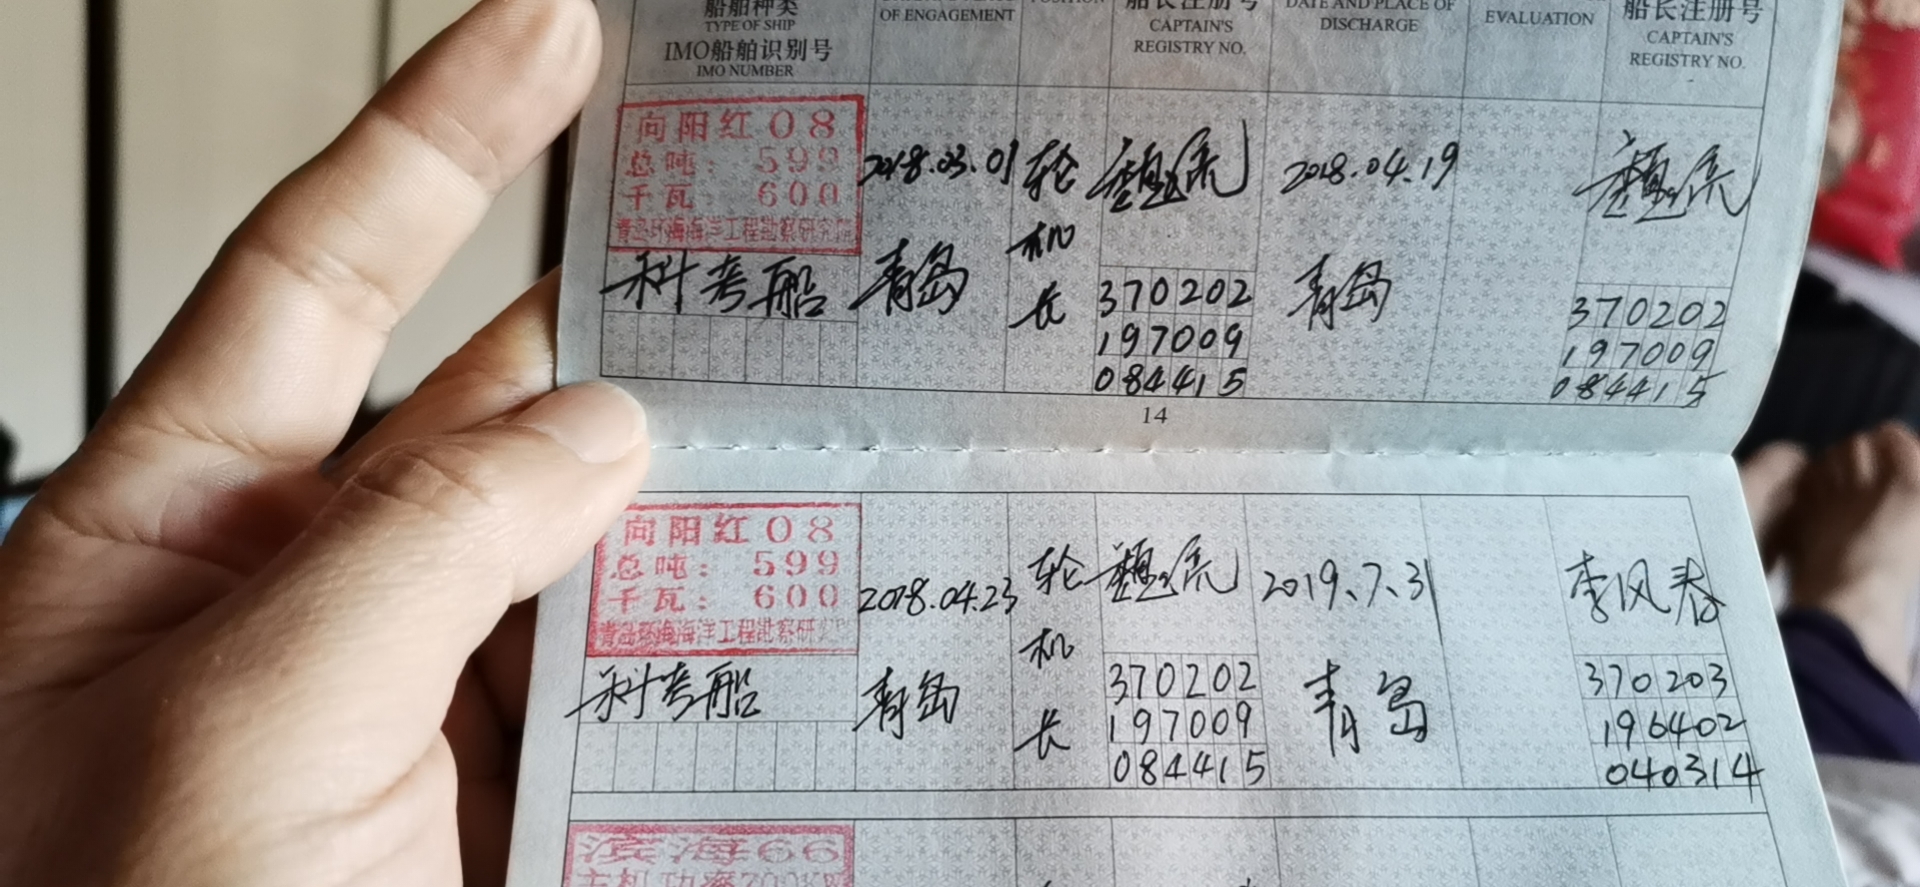 船舶种类
TYPE OF SHIP
IMO船舶识别号
IMO NUMBER
OF ENGAGEMENT
船长注册号
CAPTAIN'S
REGISTRY NO.
DATE AND PLACE OF
DISCHARGE
EVALUATION
船长注册号
CAPTAIN'S
REGISTRY NO.
向阳红08
总吨: 599
千瓦: 600
青岛环海海洋工程勘察研究院
科考船
2018.03.01
青岛
轮
机
长
370202
197009
084415
2018.04.19
青岛
370202
197009
084415
14
向阳红08
总吨: 599
千瓦: 600
青岛环海海洋工程勘察研
科考船
2018.04.23
青岛
轮
机
长
370202
197009
084415
2019.7.31
青岛
李风春
370203
196402
040314
滨海66
主机功率700KW